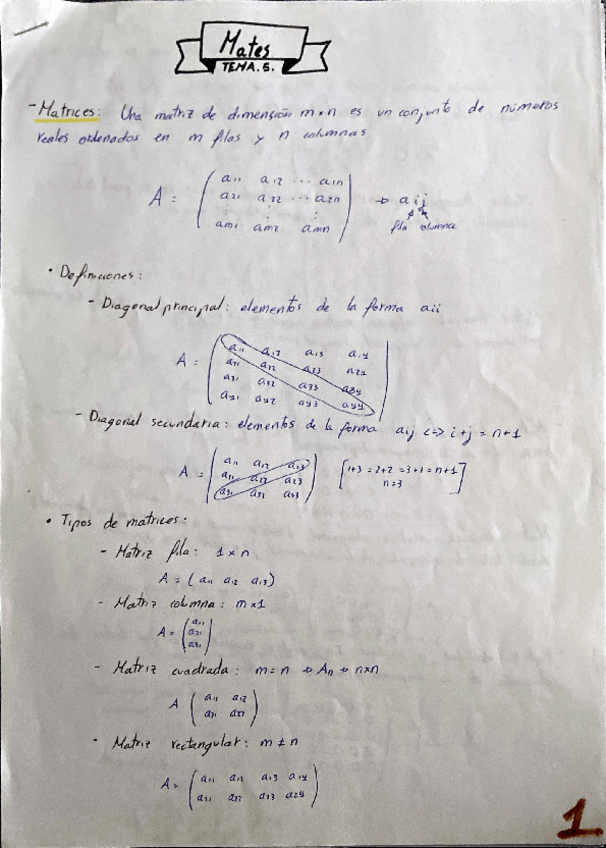 Mates
TEMA.5.
- Matrices: Una matriz de dimensión m×n es un conjunto de números
reales ordenados en m filas y n columnas
A = ( a11 a12 ... a1n
a21 a22 ... a2n
⋮ ⋮ ⋮
am1 am2 amn ) ⇒ aij
fila columna
• Definiciones:
- Diagonal principal: elementos de la forma aii
A = ( a11 a12 a13 a14
a21 a22 a23 a24
a31 a32 a33 a34
a41 a42 a43 a44 )
- Diagonal secundaria: elementos de la forma aij <=> i+j = n+1
A = ( a11 a12 a13
a21 a22 a23
a31 a32 a33 ) [ 1+3 = 2+2 = 3+1 = n+1
n=3 ]
• Tipos de matrices:
- Matriz fila: 1×n
A = ( a11 a12 a13 )
- Matriz columna: m×1
A = ( a11
a21
a31 )
- Matriz cuadrada: m=n ⇒ An ⇒ n×n
A ( a11 a12
a21 a22 )
- Matriz rectangular: m≠n
A = ( a11 a12 a13 a14
a21 a22 a23 a24 )
1